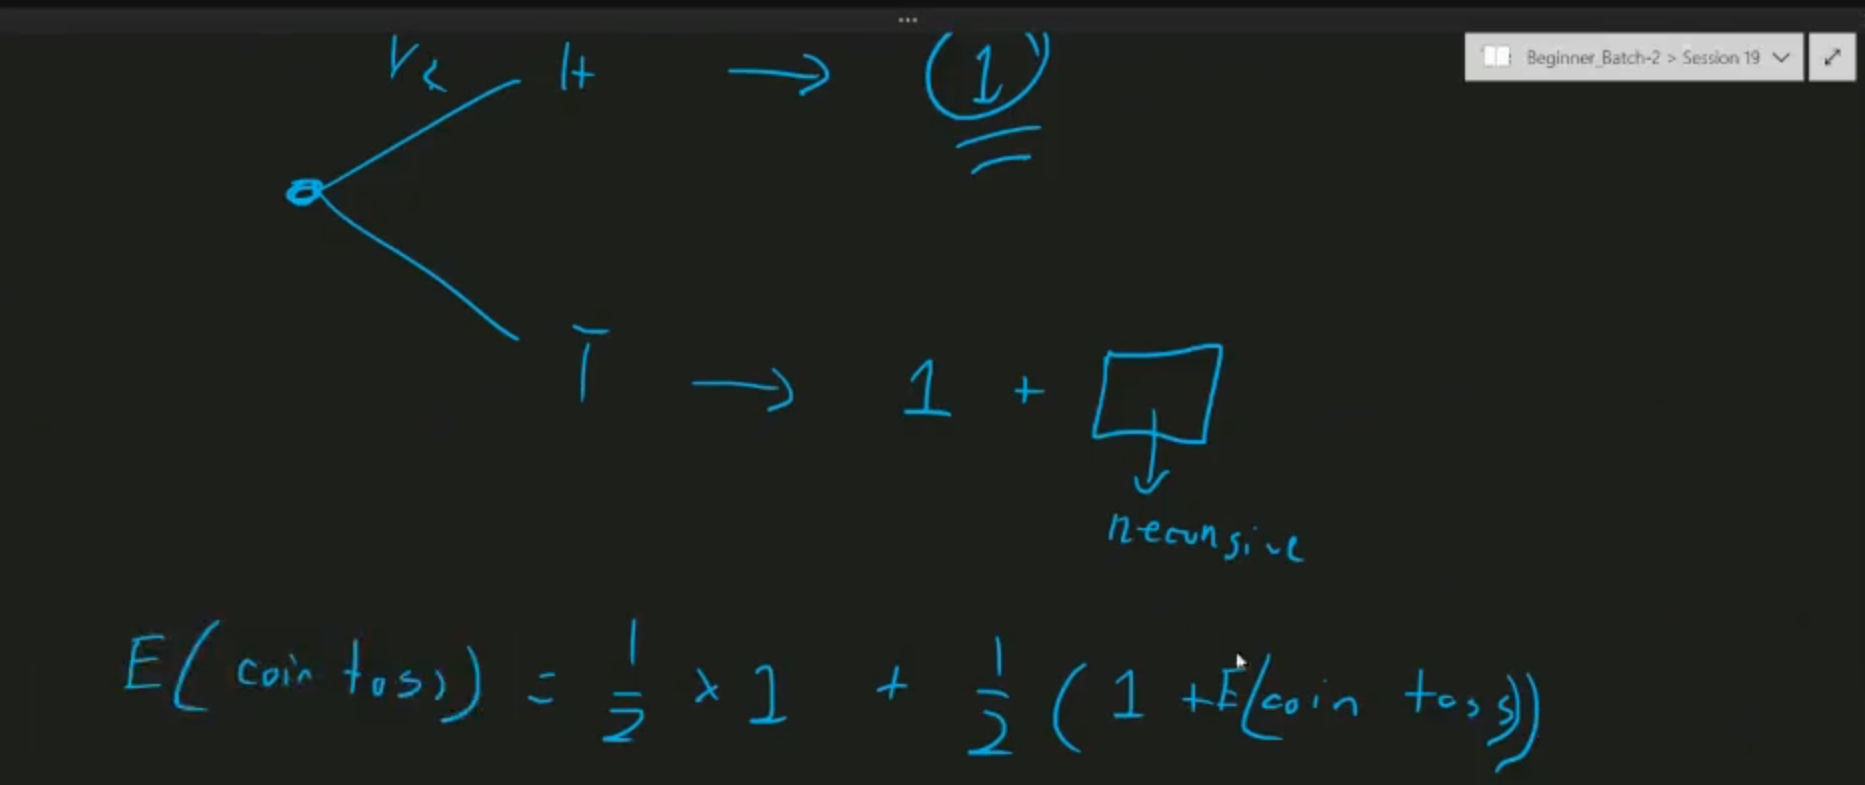 Beginner_Batch-2 > Session 19
1/2 H → 1
T → 1 +
recursive
E(coin toss) = 1/2 × 1 + 1/2 (1 + E(coin toss))